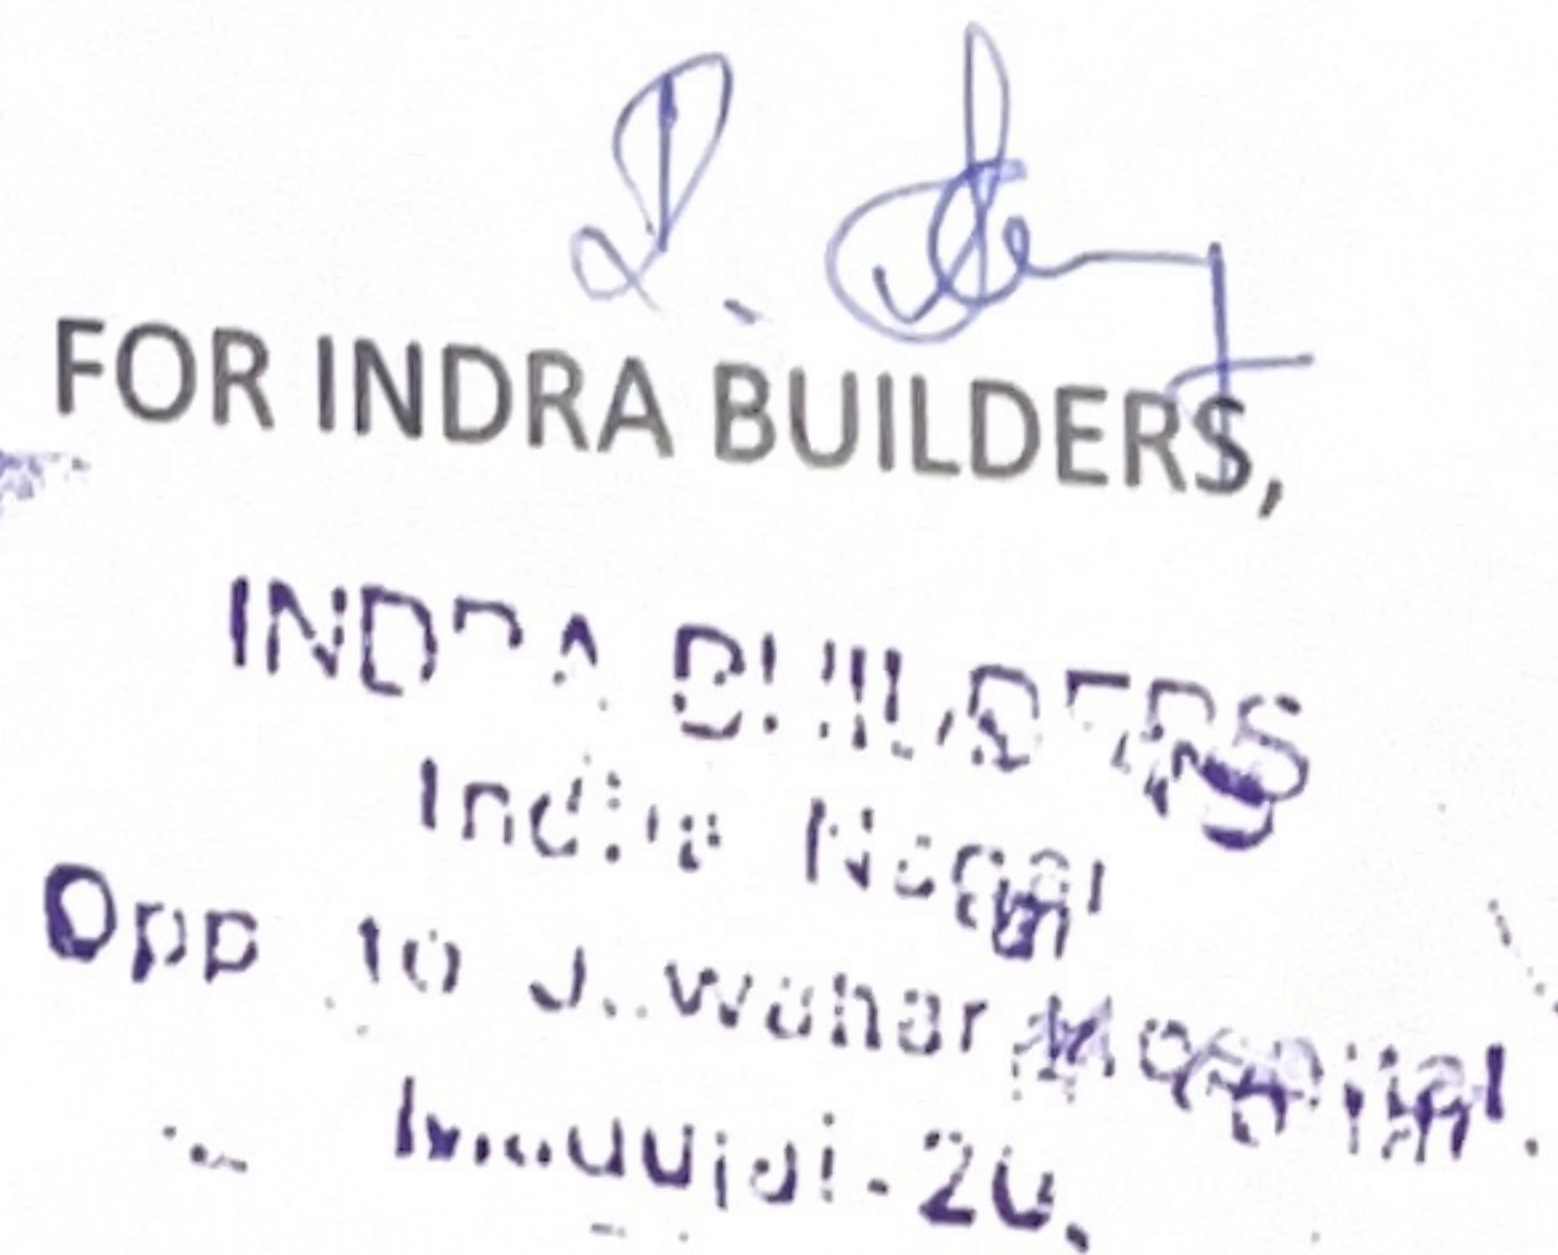 FOR INDRA BUILDERS,
INDRA BUILDERS
Indira Nagar
Opp to Jawahar Hospital.
20.